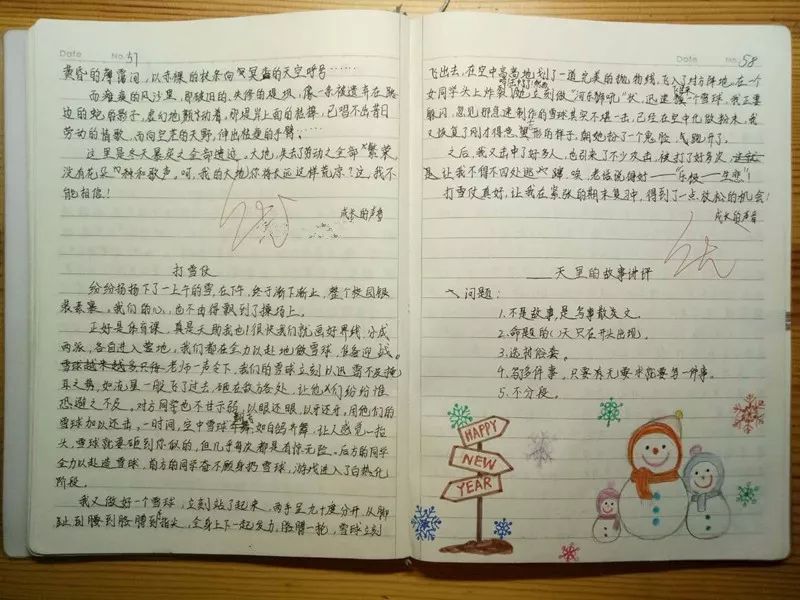 Date No. 57
黄昏的薄雾间，以赤裸的枝条向冥杳的天空呼号……
而瘫痪的风沙里，那破旧的、失修的堤坝，像一条被遗弃在路
边的蛇的影子，虚幻地飘动着，那堤岸上面的枯藤，已习不出昔日
劳动的情歌，而向空茫的天野，伸出枯瘦的手臂。
这里是冬天暴戾之全部遗迹。大地，失去了劳动之全部"繁荣，
没有花朵 和歌声。呵，我的大地你将永远这样荒凉？这，我不
能相信！
成长的声音
优
打雪仗
纷纷扬扬下了一上午的雪，在下午，终于渐下渐止，整个校园银
装素裹，我们的心，也不由得飘到了操场上。
正好是体育课，真是天助我也！很快我们就画好界线，分成
两派，各自进入营地，我们都在全力以赴地做雪球，准备迎战。
老师一声令下，我们的雪球立刻以迅雷不及掩
耳之势，如流星一般飞了过去，砸在敌方各处，让他们纷纷惟
恐避之不及，对方同学也不甘示弱，以眼还眼，以牙还牙，用他们的
雪球加以还击，一时间，空中雪球翻飞，如白鸽齐舞，让人感觉一抬
头，雪球就要砸到你似的，但几乎每次都是有惊无险。后方的同学
全力以赴造雪球，前方的同学奋不顾身扔雪球，游戏进入了白热化
阶段。
我又做好一个雪球，立刻站了起来，两手呈九十度分开，从脚
趾到腰到胳膊到指尖，全身上下一起发力，胳膊一抡，雪球立刻
Date No. 58
飞出去，在空中高高地划了一道完美的抛物线，飞入了对方阵地，在一个
女同学头上炸裂，她立刻做"河东狮吼"状，迅速 一个雪球，我正要
躲闪，忽见那急速制作的雪球其实不堪一击，已经在空中化做粉末，我
又恢复了刚才得意 形的样子，朝她扮了一个鬼脸，气跑开了。
之后，我又击中了好多人，也引来了不少攻击，被打了好多次，
让我不得不四处逃 ，唉，老话说得好——"乐极一生悲"！
打雪仗真好，让我在紧张的期末复习中，得到了一点放松的机会！
成长的声音
优
天里的故事讲评
一、问题：
1.不是故事，是多事散文。
2.命题的( )天只在开头出现。
3.选材俗套。
4.写多件事，只要有无要求就要写一件事。
5.不分段。
HAPPY
NEW
YEAR